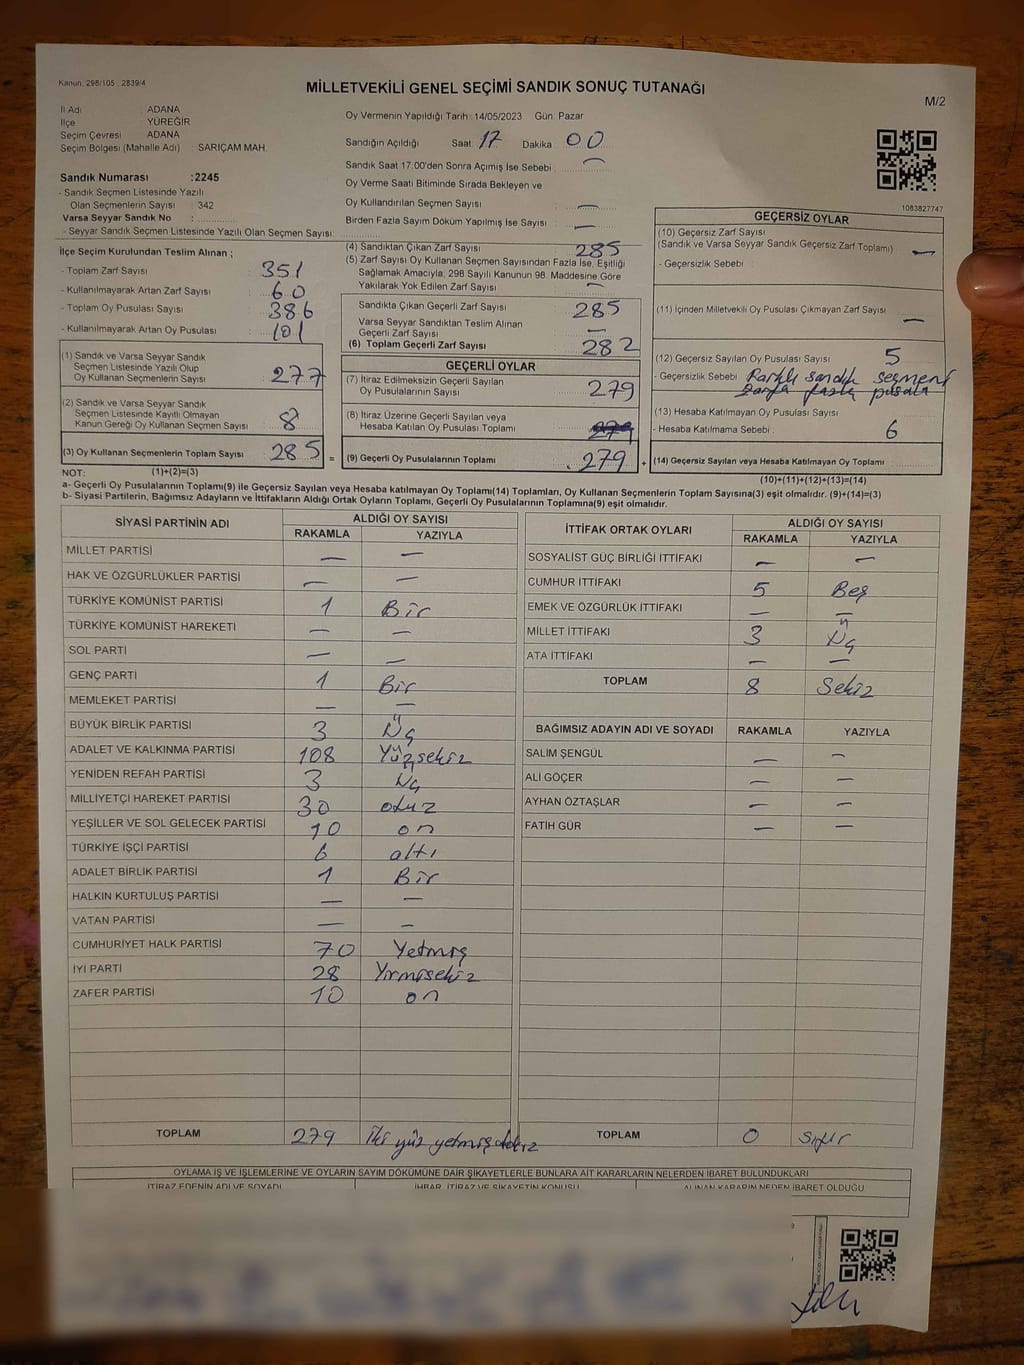 Kanun: 298/105 . 2839/4
MİLLETVEKİLİ GENEL SEÇİMİ SANDIK SONUÇ TUTANAĞI
M/2
İl Adı ADANA
İlçe YÜREĞİR
Seçim Çevresi ADANA
Seçim Bölgesi (Mahalle Adı) : SARIÇAM MAH.
Sandık Numarası :2245
- Sandık Seçmen Listesinde Yazılı
Olan Seçmenlerin Sayısı : 342
Varsa Seyyar Sandık No :
- Seyyar Sandık Seçmen Listesinde Yazılı Olan Seçmen Sayısı:
Oy Vermenin Yapıldığı Tarih : 14/05/2023 Gün: Pazar
Sandığın Açıldığı Saat: 17 Dakika 00
Sandık Saat 17:00'den Sonra Açımış İse Sebebi : —
Oy Verme Saati Bitiminde Sırada Bekleyen ve
Oy Kullandırılan Seçmen Sayısı : —
Birden Fazla Sayım Döküm Yapılmış İse Sayısı : —
1083827747
İlçe Seçim Kurulundan Teslim Alınan ;
- Toplam Zarf Sayısı : 351
- Kullanılmayarak Artan Zarf Sayısı : 60
- Toplam Oy Pusulası Sayısı : 386
- Kullanılmayarak Artan Oy Pusulası : 101
(1) Sandık ve Varsa Seyyar Sandık
Seçmen Listesinde Yazılı Olup
Oy Kullanan Seçmenlerin Sayısı : 277
(2) Sandık ve Varsa Seyyar Sandık
Seçmen Listesinde Kayıtlı Olmayan
Kanun Gereği Oy Kullanan Seçmen Sayısı : 8
(3) Oy Kullanan Seçmenlerin Toplam Sayısı : 285
(4) Sandıktan Çıkan Zarf Sayısı : 285
(5) Zarf Sayısı Oy Kullanan Seçmen Sayısından Fazla İse, Eşitliği
Sağlamak Amacıyla, 298 Sayılı Kanunun 98. Maddesine Göre
Yakılarak Yok Edilen Zarf Sayısı : —
Sandıkta Çıkan Geçerli Zarf Sayısı : 285
Varsa Seyyar Sandıktan Teslim Alınan
Geçerli Zarf Sayısı : —
(6) Toplam Geçerli Zarf Sayısı : 282
GEÇERLİ OYLAR
(7) İtiraz Edilmeksizin Geçerli Sayılan
Oy Pusulalarının Sayısı : 279
(8) İtiraz Üzerine Geçerli Sayılan veya
Hesaba Katılan Oy Pusulası Toplamı : 279
= (9) Geçerli Oy Pusulalarının Toplamı : 279
GEÇERSİZ OYLAR
(10) Geçersiz Zarf Sayısı
(Sandık ve Varsa Seyyar Sandık Geçersiz Zarf Toplamı) : —
- Geçersizlik Sebebi :
(11) İçinden Milletvekili Oy Pusulası Çıkmayan Zarf Sayısı : —
(12) Geçersiz Sayılan Oy Pusulası Sayısı : 5
- Geçersizlik Sebebi : Farklı sandık seçmeni
zarfa fazla pusula
(13) Hesaba Katılmayan Oy Pusulası Sayısı :
- Hesaba Katılmama Sebebi : 6
+ (14) Geçersiz Sayılan veya Hesaba Katılmayan Oy Toplamı :
(10)+(11)+(12)+(13)=(14)
NOT: (1)+(2)=(3)
a- Geçerli Oy Pusulalarının Toplamı(9) ile Geçersiz Sayılan veya Hesaba katılmayan Oy Toplamı(14) Toplamları, Oy Kullanan Seçmenlerin Toplam Sayısına(3) eşit olmalıdır. (9)+(14)=(3)
b- Siyasi Partilerin, Bağımsız Adayların ve İttifakların Aldığı Ortak Oyların Toplamı, Geçerli Oy Pusulalarının Toplamına(9) eşit olmalıdır.
SİYASİ PARTİNİN ADI ALDIĞI OY SAYISI
RAKAMLA YAZIYLA
MİLLET PARTİSİ — —
HAK VE ÖZGÜRLÜKLER PARTİSİ — —
TÜRKİYE KOMÜNİST PARTİSİ 1 Bir
TÜRKİYE KOMÜNİST HAREKETİ — —
SOL PARTİ — —
GENÇ PARTİ 1 Bir
MEMLEKET PARTİSİ — —
BÜYÜK BİRLİK PARTİSİ 3 Üç
ADALET VE KALKINMA PARTİSİ 108 Yüzsekiz
YENİDEN REFAH PARTİSİ 3 Üç
MİLLİYETÇİ HAREKET PARTİSİ 30 otuz
YEŞİLLER VE SOL GELECEK PARTİSİ 10 on
TÜRKİYE İŞÇİ PARTİSİ 6 altı
ADALET BİRLİK PARTİSİ 1 Bir
HALKIN KURTULUŞ PARTİSİ — —
VATAN PARTİSİ — —
CUMHURİYET HALK PARTİSİ 70 Yetmiş
İYİ PARTİ 28 Yirmisekiz
ZAFER PARTİSİ 10 on
TOPLAM 279 İki yüz yetmiş dokuz
İTTİFAK ORTAK OYLARI ALDIĞI OY SAYISI
RAKAMLA YAZIYLA
SOSYALİST GÜÇ BİRLİĞİ İTTİFAKI — —
CUMHUR İTTİFAKI 5 Beş
EMEK VE ÖZGÜRLÜK İTTİFAKI — —
MİLLET İTTİFAKI 3 Üç
ATA İTTİFAKI — —
TOPLAM 8 Sekiz
BAĞIMSIZ ADAYIN ADI VE SOYADI RAKAMLA YAZIYLA
SALİM ŞENGÜL — —
ALİ GÖÇER — —
AYHAN ÖZTAŞLAR — —
FATİH GÜR — —
TOPLAM 0 Sıfır
OYLAMA İŞ VE İŞLEMLERİNE VE OYLARIN SAYIM DÖKÜMÜNE DAİR ŞİKAYETLERLE BUNLARA AİT KARARLARIN NELERDEN İBARET BULUNDUKLARI
İTİRAZ EDENİN ADI VE SOYADI İHBAR, İTİRAZ VE ŞİKAYETİN KONUSU ALINAN KARARIN NEDEN İBARET OLDUĞU